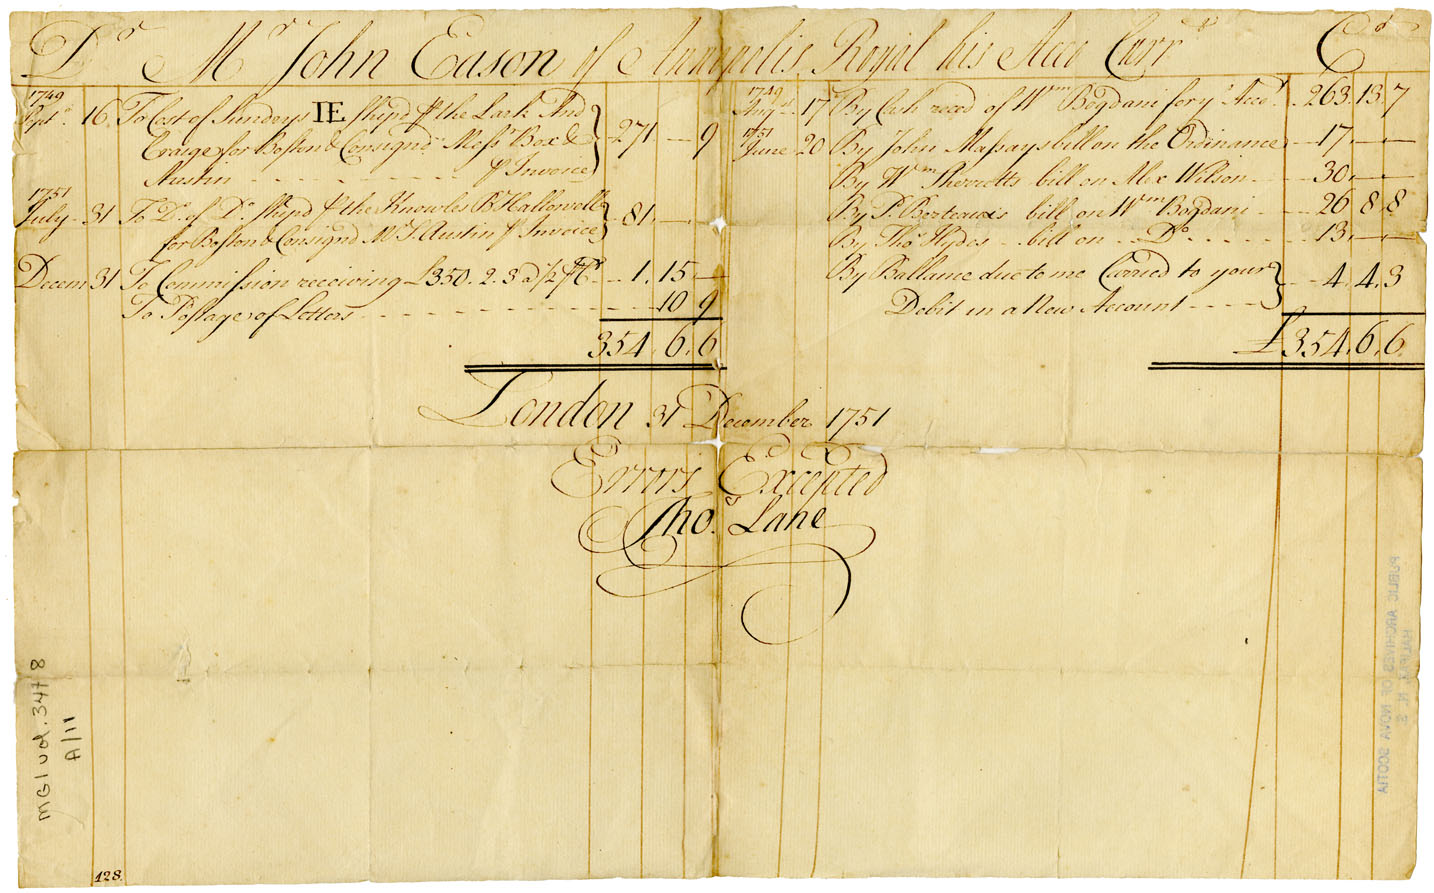 Dr Mr John Eason of Annapolis Royal his Acco Currt Cr
1749
Sept. 16 To Cost of Sundrys IE ship'd ⅌ the Lark And
Craige for Boston & Consign'd Messrs Box &
Austin - - - ⅌ Invoice } 271 — 9
1751
July 31 To Do. of Do. ship'd ⅌ the Knowles B. Hallowell
for Boston & Consign'd Mr S. Austin ⅌ Invoice } 81 — —
Decem 31 To Commission receiving £350. 2. 3 a 1/2 ⅌ Ct. 1. 15 —
To Postage of Letters - - - 10 9
354. 6. 6
1749
Augst. 17 By Cash reced of Wm Bogdani for yr Acco. 263. 13. 7
1751
June 20 By John Massays bill on the Ordinance 17. — —
By Wm Sherretts bill on Alex Wilson 30. — —
By P. Berteaus bill on Wm Bogdani 26 8. 8
By Thos Hydes bill on Do 13. — —
By Ballance due to me Carried to your
Debit in a New Account } 4. 4. 3
£354. 6. 6.
London 31 December 1751
Errors Excepted
Thos. Lane
MG1 vol. 347 8
A/11
128
PUBLIC ARCHIVES OF NOVA SCOTIA
HALIFAX, N. S.